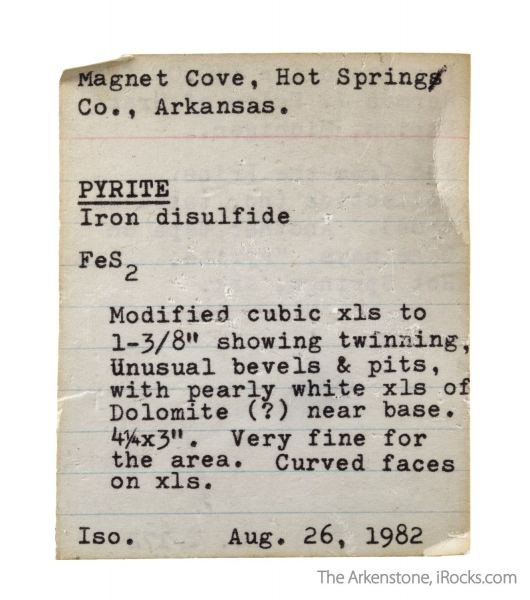 Magnet Cove, Hot Springs
Co., Arkansas.
PYRITE
Iron disulfide
FeS2
Modified cubic xls to
1-3/8" showing twinning,
Unusual bevels & pits,
with pearly white xls of
Dolomite (?) near base.
4¼x3". Very fine for
the area. Curved faces
on xls.
Iso. Aug. 26, 1982
The Arkenstone, iRocks.com